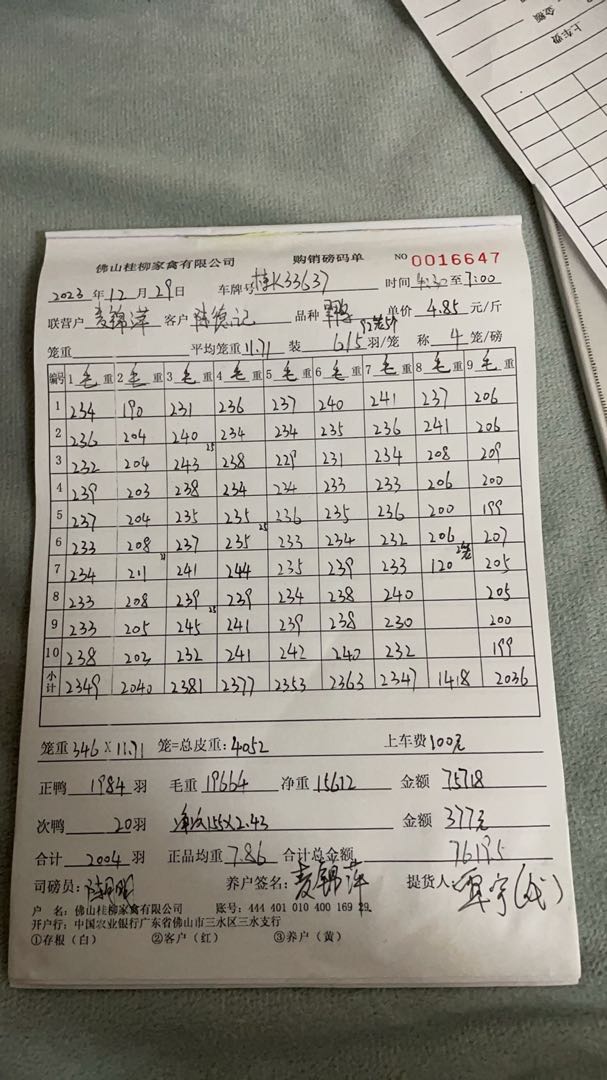 金额
上车费
佛山桂柳家禽有限公司 购销磅码单 NO 0016647
2023 年 12 月 29 日 车牌号 桂K33637 时间 4:30 至 7:00
联营户 麦锦萍 客户 品种 单价 4.85 元/斤
笼重 平均笼重 11.71 装 6/5 羽/笼 称 4 笼/磅
编号 1 毛 重 2 毛 重 3 毛 重 4 毛 重 5 毛 重 6 毛 重 7 毛 重 8 毛 重 9 毛 重
1 234 190 231 236 237 240 241 237 206
2 236 204 240 234 234 235 236 241 206
3 232 204 243 238 229 231 234 208 209
4 239 203 238 234 234 233 233 206 200
5 237 204 235 235 236 235 236 200 199
6 233 208 237 235 233 234 232 206 207
7 234 211 241 244 235 239 233 120 2笼 205
8 233 208 239 239 234 238 240 205
9 233 205 245 241 239 238 230 200
10 238 203 232 241 242 240 232 199
小计 2349 2040 2381 2377 2353 2363 2347 1418 2036
笼重 346 X 11.71 笼=总皮重: 4052 上车费 100元
正鸭 1984 羽 毛重 19664 净重 15612 金额 75718
次鸭 20 羽 155X2.43 金额 377元
合计 2004 羽 正品均重 7.86 合计总金额 76195
司磅员: 养户签名: 麦锦萍 提货人:
户 名: 佛山桂柳家禽有限公司 账号: 444 401 010 400 169 29
开户行: 中国农业银行广东省佛山市三水区三水支行
①存根（白） ②客户（红） ③养户（黄）